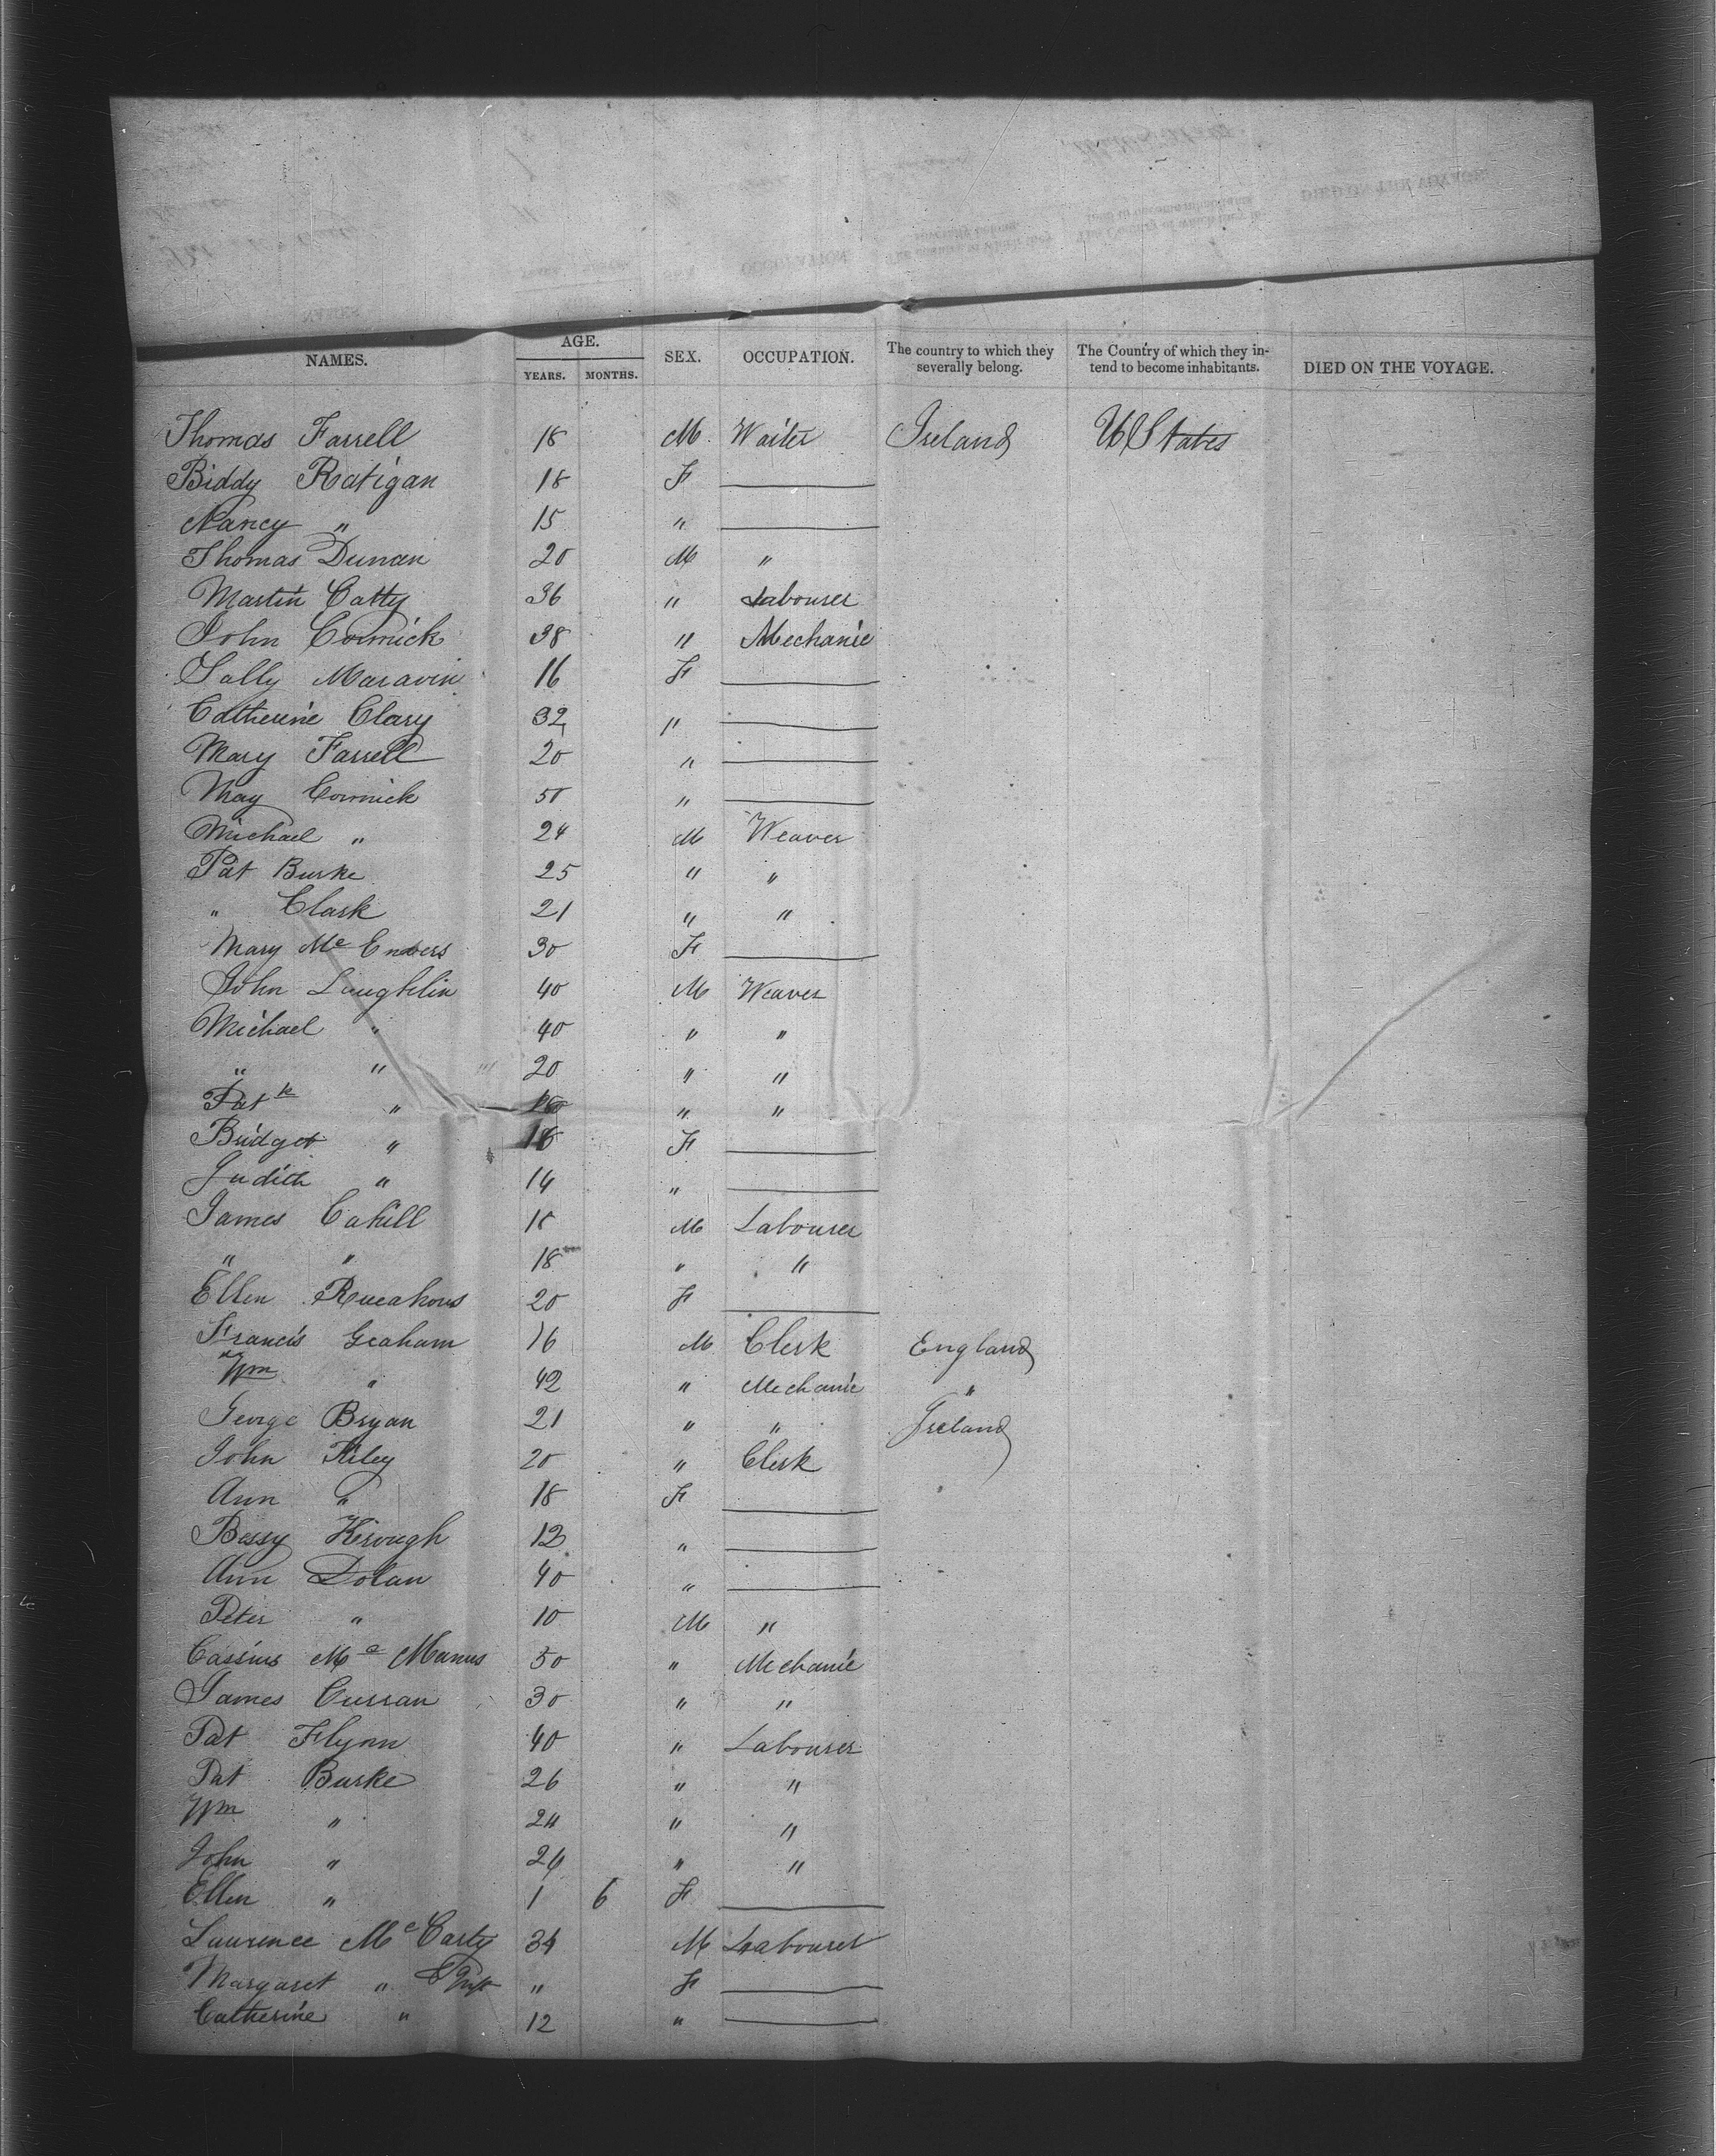 NAMES. AGE. SEX. OCCUPATION. The country to which they severally belong. The Country of which they intend to become inhabitants. DIED ON THE VOYAGE.
YEARS. MONTHS.
Thomas Farrell 18 M. Waiter Ireland U States
Biddy Ratigan 18 F
Nancy " 15 "
Thomas Dunan 20 M "
Martin Catty 36 " Labourer
John Cormick 38 " Mechanic
Sally Maravin 16 F
Catherine Clary 32 "
Mary Farrell 20 "
May Cormick 50 "
Michael " 24 M Weaver
Pat Burke 25 " "
" Clark 21 " "
Mary Mc 30 F
John Loughlin 40 M Weaver
Michael " 40 " "
" " 20 " "
Patk " " "
Bridget " 18 F
Judith " 14 "
James Cahill 18 M Labourer
" " 18 " "
Ellen 20 F
Francis Graham 16 M Clerk England
Wm " 42 " Mechanic "
George Bryan 21 " " Ireland
John Kiley 20 " Clerk
Ann " 18 F
Bessy Keough 13 "
Ann Dolan 40 "
Peter " 10 M "
Cassius Mc Manus 50 " Mechanic
James Curran 30 " "
Pat Flynn 40 " Labourer
Pat Burke 26 " "
Wm " 24 " "
John " 24 " "
Ellen " 1 6 F
Laurence McCarty 34 M Labourer
Margaret " " F
Catherine " 12 "